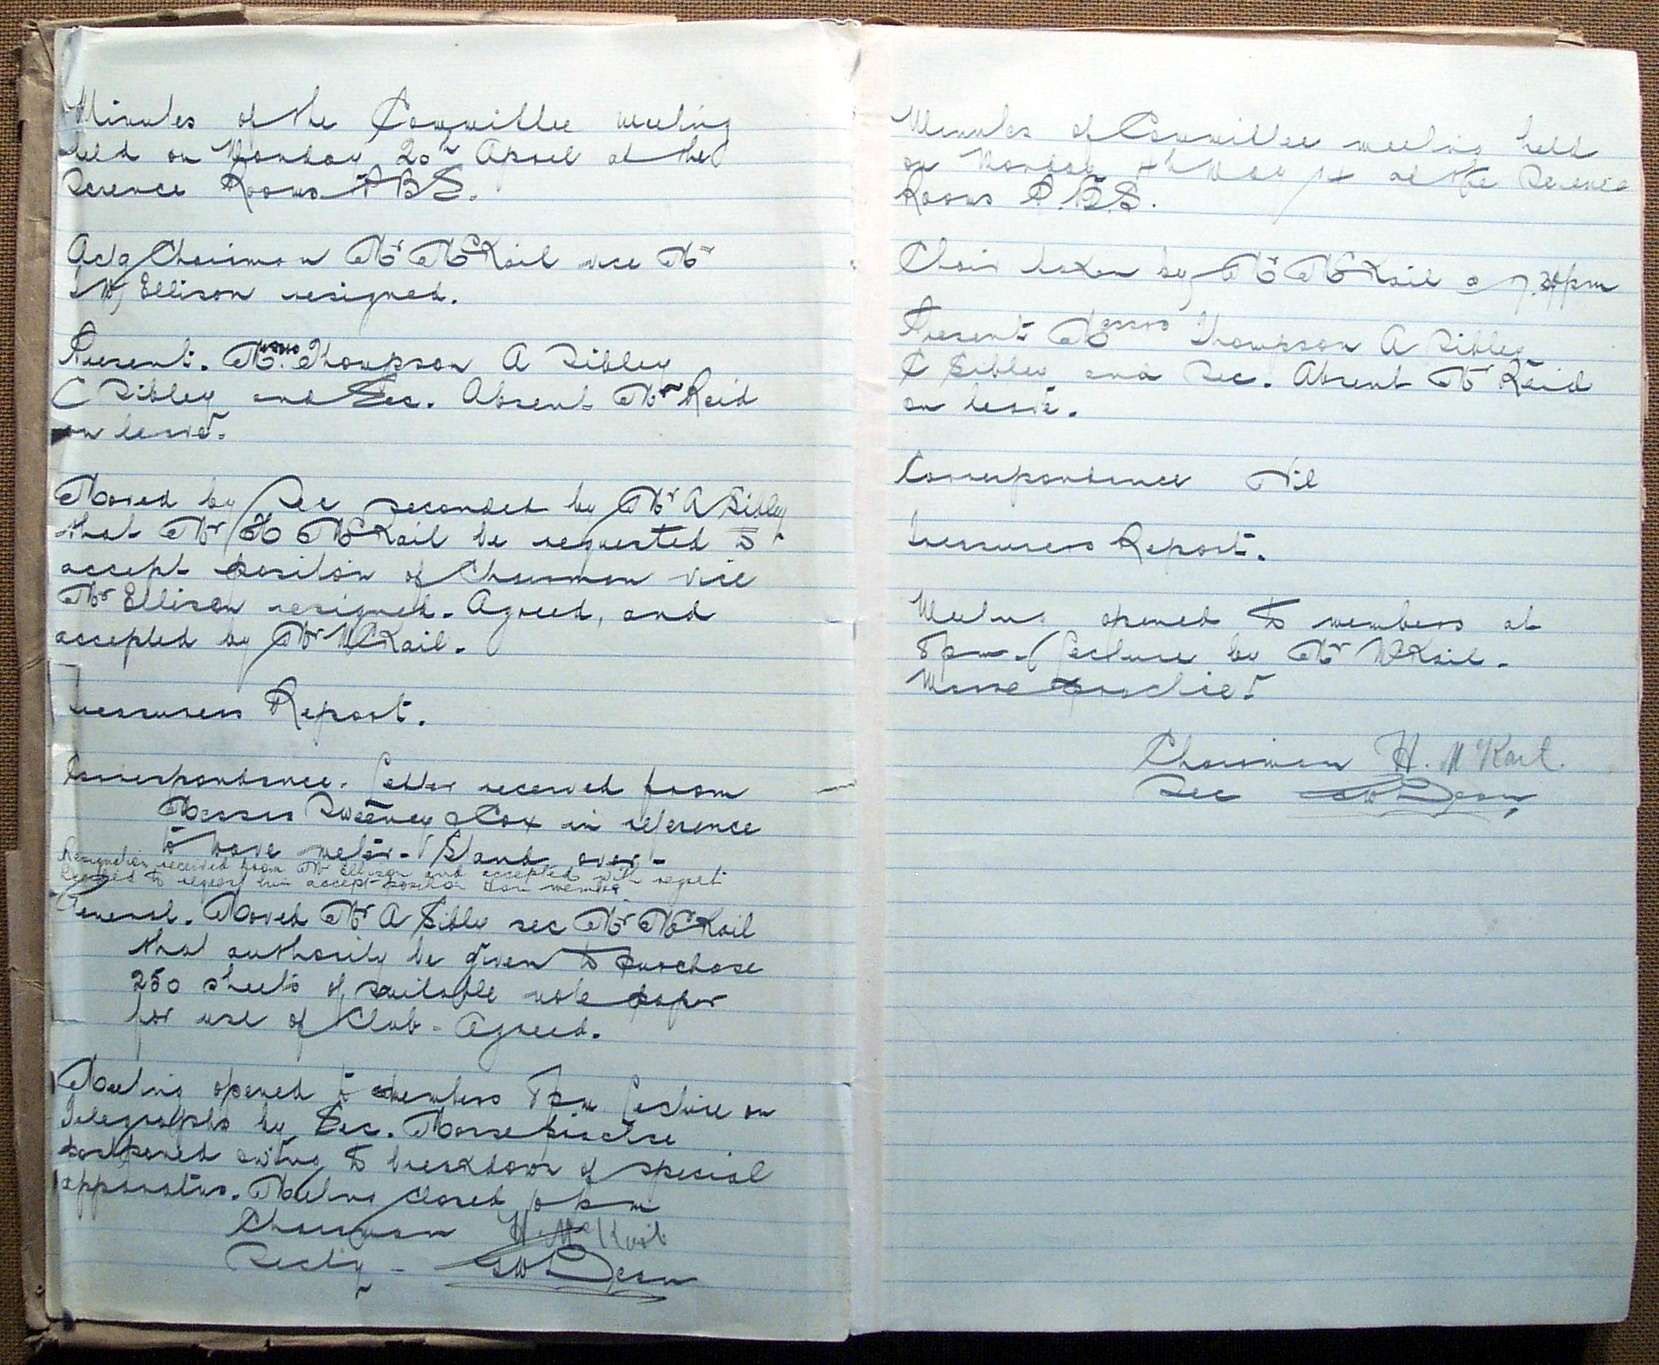 Minutes of the Committee meeting
held on Monday 20th April at the
Science Rooms P B S.
Actg Chairman Mr McKail vice Mr
Ellison resigned.
Present. Messrs Thompson A Sibley
C Sibley and Sec. Absent Mr Reid
on leave.
Moved by Sec seconded by Mr A Sibley
that Mr H McKail be requested to
accept position of Chairman vice
Mr Ellison resigned. Agreed, and
accepted by Mr McKail.
Treasurers Report.
Correspondence. Letter received from
Messrs Sweeney & Cox in reference
to wave meter - Stand over -
Resignation received from Mr Ellison and accepted with regret
Decided to request him accept position Hon member
General. Moved Mr A Sibley sec Mr McKail
that authority be given to purchase
250 sheets of suitable note paper
for use of Club - Agreed.
Meeting opened to members 8 pm Lecture on
Telegraphs by Sec. Morse practise
postponed owing to breakdown of special
apparatus. Meeting closed 10 pm
Chairman H. McKail
Secty - Dean
Minutes of Committee meeting held
on Monday 4th May 14 at the Science
Rooms P.B.S.
Chair taken by Mr McKail @ pm
Present Messrs Thompson A Sibley
C Sibley and Sec. Absent Mr Reid
on leave.
Correspondence Nil
Treasurers Report.
Meeting opened to members at
8 pm - Lecture by Mr McKail -
Morse practise
Chairman H. McKail.
Sec Dean